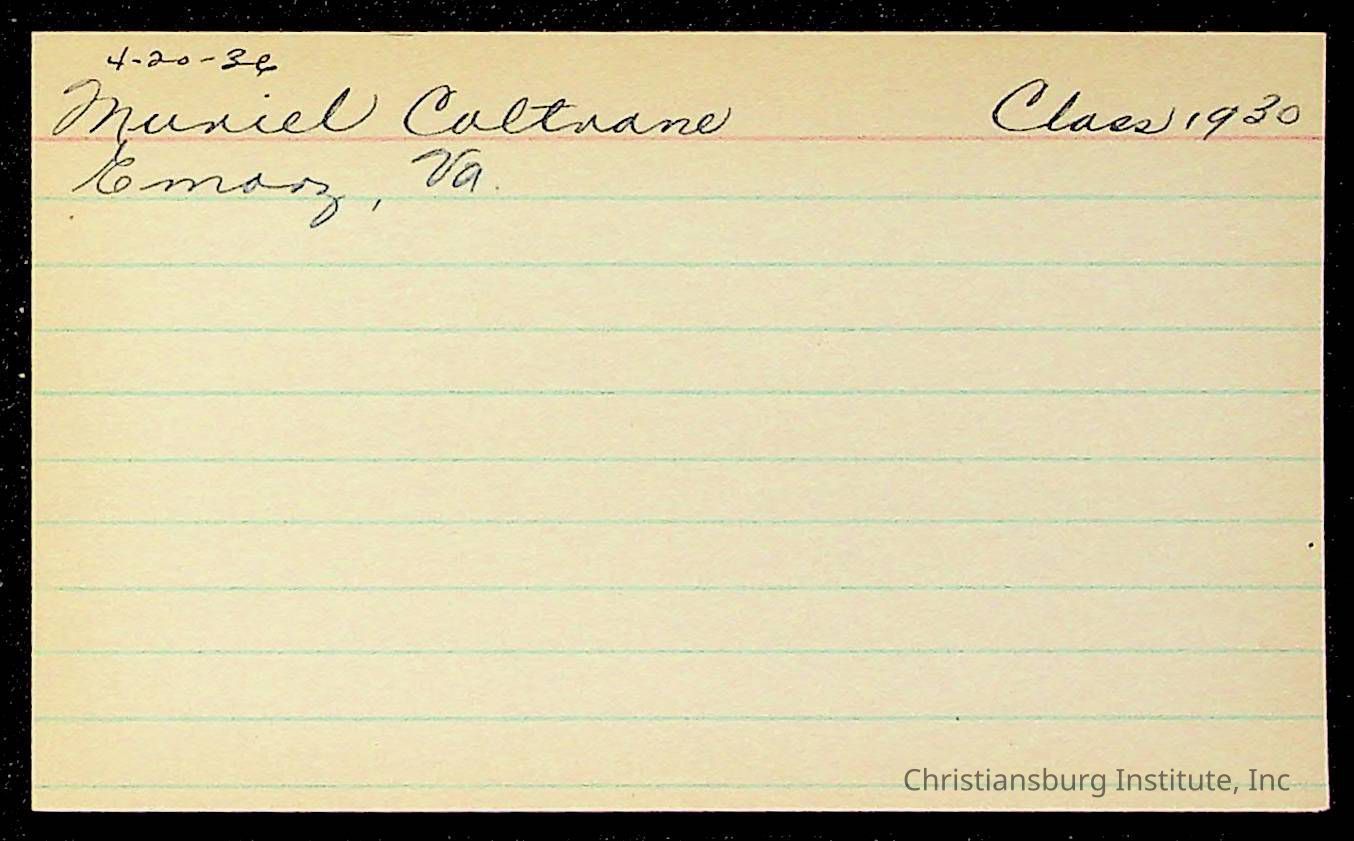 4-20-36
Muriel Coltrane Class 1930
Emory, Va.
Christiansburg Institute, Inc